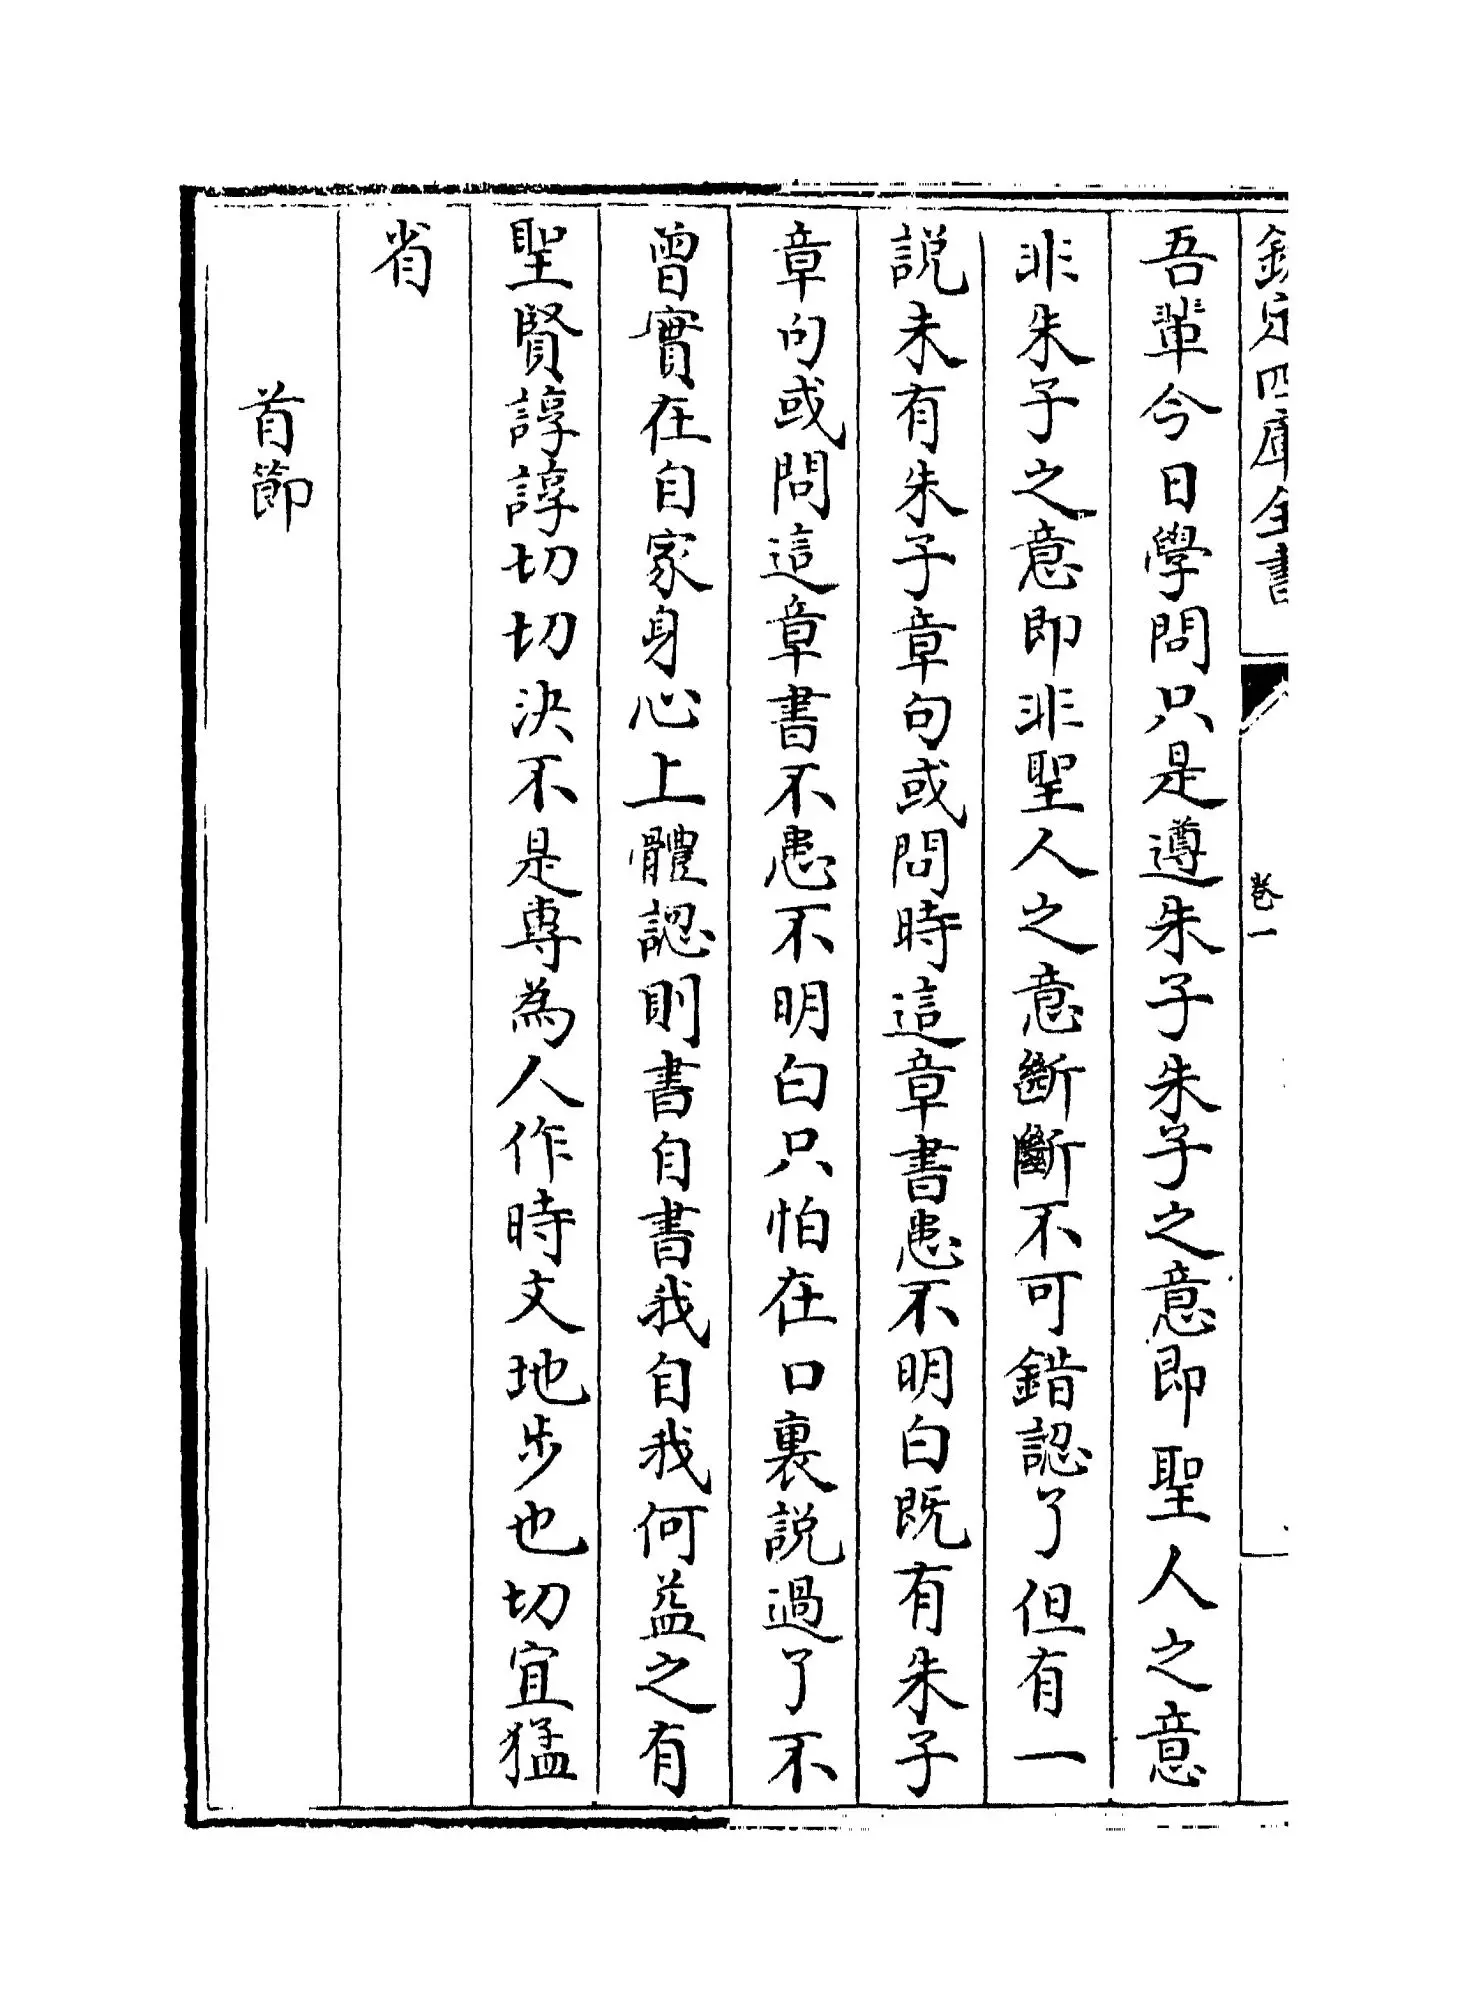 欽定四庫全書
卷一
吾輩今日學問只是遵朱子朱子之意即聖人之意
非朱子之意即非聖人之意斷斷不可錯認了但有一
説未有朱子章句或問時這章書患不明白既有朱子
章句或問這章書不患不明白只怕在口裏説過了不
曾實在自家身心上體認則書自書我自我何益之有
聖賢諄諄切切決不是專為人作時文地步也切宜猛
省
首節